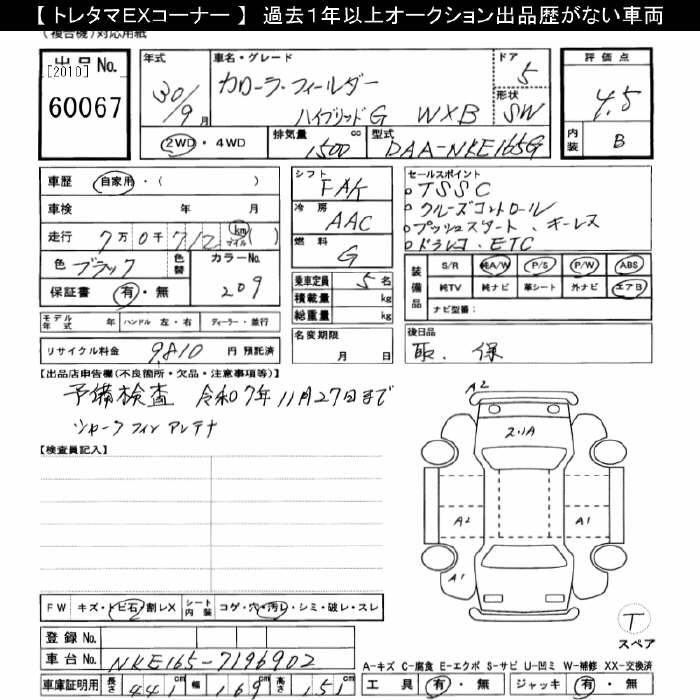 【 トレタマEXコーナー 】 過去1年以上オークション出品歴がない車両
(複合機)対応用紙
出品No.
[2010]
60067
年式
30/9月
車名・グレード
カローラ・フィールダー
ハイブリッドG WXB
ドア
5
形状
SW
評価点
4.5
内装
B
2WD・4WD
排気量
1500 cc
型式
DAA-NKE165G
車歴 自家用・( )
車検 年 月
走行 7万0千712 km マイル ( )
色 ブラック
色替
カラーNo.
209
保証書 有・無
シフト
FAK
冷房
AAC
燃料
G
乗車定員 5名
積載量 kg
総重量 kg
セールスポイント
TSSC
クルーズコントロール
プッシュスタート、キーレス
ドラレコ、ETC
装備品
S/R 純A/W P/S P/W ABS
純TV 純ナビ 革シート 外ナビ エアB
ナビ型番:
モデル年式 年 ハンドル 左・右 ディーラー・並行
リサイクル料金 9,810 円 預託済
名変期限
月 日
後日品
取、保
【出品店申告欄(不良箇所・欠品・注意事項等)】
予備検査 令和7年11月27日まで
シャークフィンアンテナ
【検査員記入】
A2
2.1A
A2
A1
A1
FW キズ・トビ石・割レX
シート内装 コゲ・穴・汚レ・シミ・破レ・スレ
登録No.
車台No. NKE165-7196902
車庫証明用 長さ 441cm 幅 169cm 高さ 151cm
T
スペア
A-キズ C-腐食 E-エクボ S-サビ U-凹ミ W-補修 XX-交換済
工具 有・無 ジャッキ 有・無